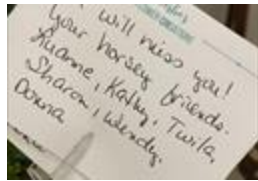 will miss you!
Your horsey friends.
Luanne, Kathy, Twila,
Sharon, Wendy.
Donna